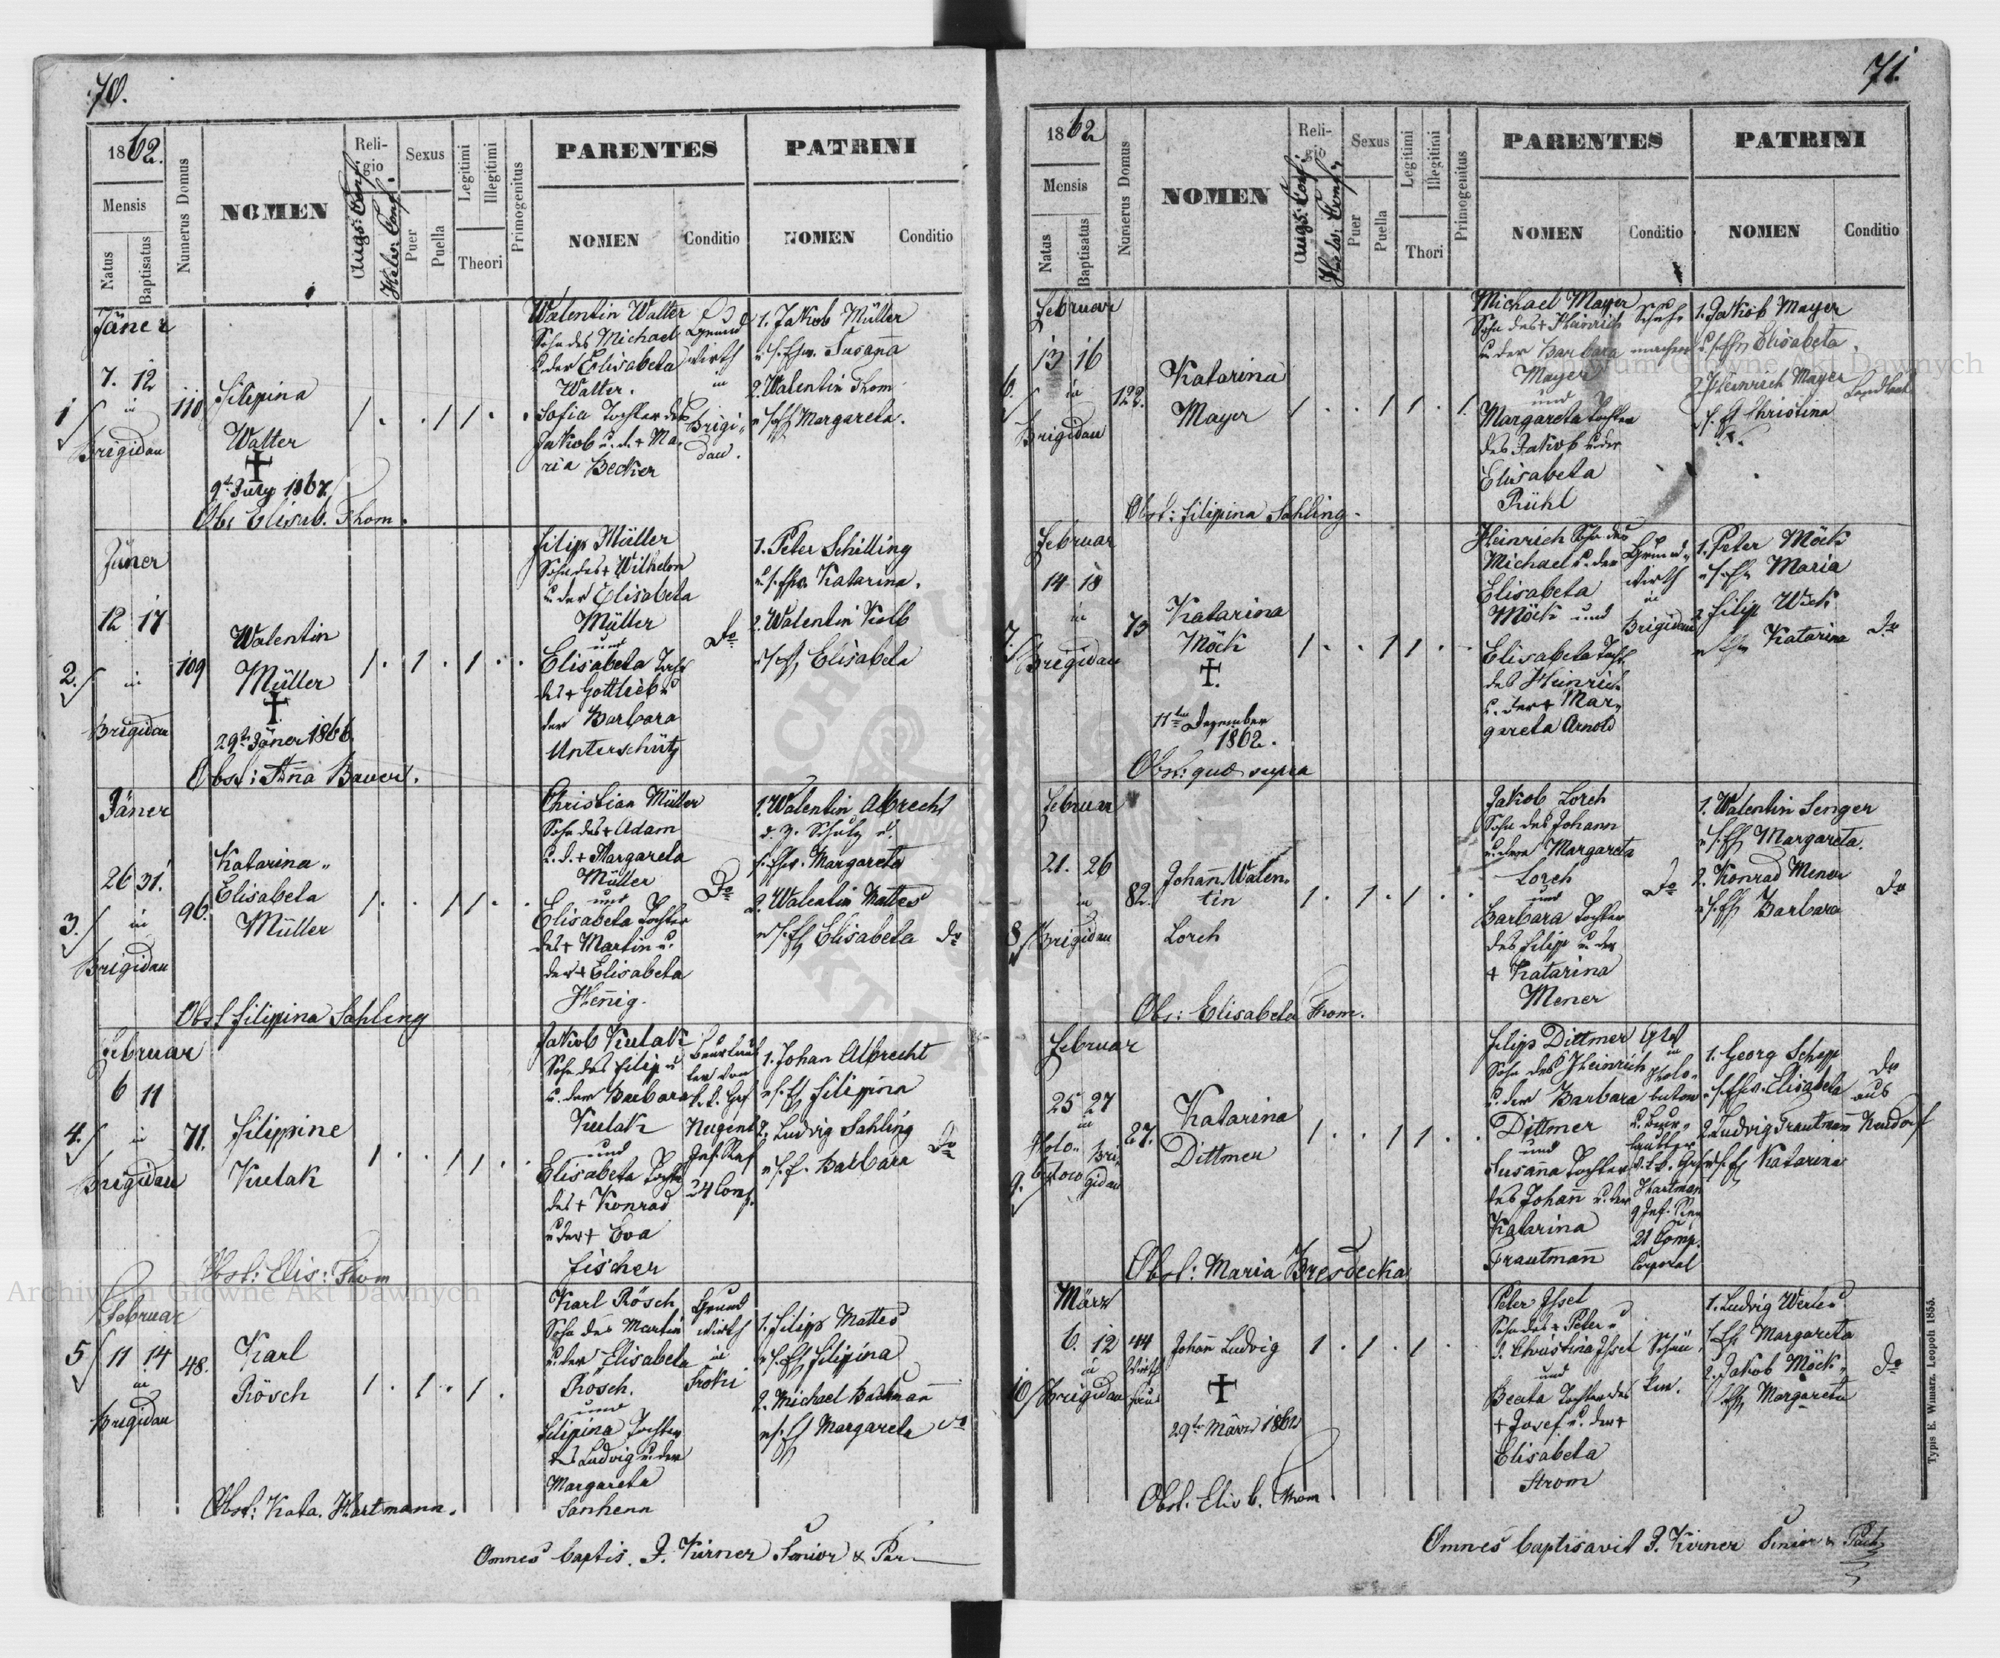 70.
1862.
Mensis
Natus
Baptisatus
Numerus Domus
NOMEN
Religio
Augs: Conf.
Helv: Conf.
Sexus
Puer
Puella
Legitimi
Illegitimi
Thori
Primogenitus
PARENTES
NOMEN
Conditio
PATRINI
NOMEN
Conditio
Jäner
7. 12
in
Brigidau
1
110
Filipina
Walter
9t July 1867
Obs Elisab. Thom.
1 . . 1 1 . .
Walentin Walter
Sohn des Michael
u der Elisabeta
Walter.
Sofia Tochter des
Jakob u. d. + Ma-
ria Becker
Grund
wirth
in
Brigi-
dau.
1. Jakob Müller
u. s. Ehw. Susana
2. Walentin Thom
Margareta.
Jäner
12 17
2.
in
Brigidau
109
Walentin
Müller
29t Jäner 1866
Obst: Anna Bauer.
1 . 1 . 1 . .
Filipp Müller
Sohn des + Wilhelm
u. der Elisabeta
Müller
und
Elisabeta Tocht
des + Gottlieb u
der Barbara
Unterschütz
Do
1. Peter Schilling
u. s. Ehw. Katarina.
2. Walentin Kolb
Elisabeta
Jäner
26 31.
3.
in
Brigidau
96.
Katarina-
Elisabeta
Müller
Obst Filippina Sahling
1 . . 1 1 . .
Christian Müller
Sohn des + Adam
u. d. + Margareta
Müller
und
Elisabeta Tochter
des + Martin u.
der + Elisabeta
Henig.
Do
1. Walentin Albrecht
d. z. Schulz u.
s. Ehw. Margareta
2. Walentin Mattes
Elisabeta do
Februar
6 11
4.
in
Brigidau
71.
Filippine
Kulak
Obst: Elis: Thom
1 . . 1 1 . .
Jakob Kulak
Sohn des Filip u
u. der Barbara
Kulak
und
Elisabeta Tocht
des + Konrad
u der + Eva
Fischer
Nugent
1. Johan Albrecht
Filippina
2. Ludvig Sahling
Barbara Do
Februar
5
11 14
in
Brigidau
48.
Karl
Rösch
Obst: Kata. Hartmann.
1 . 1 . 1 .
Karl Rösch
Sohn des Martin
u. der Elisabeta
Rösch.
und
Filipina Tochter
des Ludvig u. der
Margareta
Grund
wirth
in
1. Filipp Mattes
Filipina
2. Michael
Margareta do
Omnes baptis. J. Kirner Senior &
71.
1862
Mensis
Natus
Baptisatus
Numerus Domus
NOMEN
Religio
Augs: Conf:
Helv: Conf:
Sexus
Puer
Puella
Legitimi
Illegitimi
Thori
Primogenitus
PARENTES
NOMEN
Conditio
PATRINI
NOMEN
Conditio
Februar
13 16
6.
in
Brigidau
122.
Katarina
Mayer
Obst: Filipina Sahling.
1 . . 1 1 . 1.
Michael Mayer
Sohn des + Heinrich
u der Barbara
Mayer
und
Margareta Tochter
des Jakob u der
Elisabeta
Rühl
Schuh-
macher
1. Jakob Mayer
Elisabeta.
2. Heinrich Mayer
Christina
Februar
14 18
7.
in
Brigidau
73
Katarina
Möck
11ten Dezember
1862.
Obst: quæ supra
1 . . 1 1 . .
Heinrich Sohn des
Michael u. der
Elisabeta
Möck und
Elisabeta Tocht.
des Heinrich
u. der + Mar-
gareta Arnold
Grund-
wirth
in
Brigidau
1. Peter Möck
Maria
2. Filipp
Katarina Do
Februar
21. 26
8
in
Brigidau
82.
Johañ Walen-
tin
Lorch
Obs: Elisabeta Thom.
1 . 1 . 1 . .
Jakob Lorch
Sohn des Johann
u. dern Margareta
Lorch
und
Barbara Tochter
des Filipp u der
+ Katarina
Mener
Do
1. Walentin Senger
Margareta.
2. Konrad Mener
Barbara
Do
Februar
25 27
in
9.
Holo- Bri-
butow gidau
27.
Katarina
Dittmer
Obst: Maria Bresdecka
1 . . 1 1 . .
Filipp Dittmer
Sohn des Heinrich
u. der Barbara
Dittmer
und
Susana Tochter
des Johañ u. der
Katarina
Trautmañ
in
Holo-
butow
Hartman
21 Comp.
Corporal
1. Georg Schepp
Elisabeta
2. Ludvig Trautmann
Katarina
Do
aus
Neudorf
März
6. 12
10
in
Brigidau
44
Johañ Ludvig
29t März 1862
Obst. Elisb. Thom.
1 . 1 . 1 .
Peter Issel
Sohn des + Peter u
d. Christina Issel
und
Beata Tochter des
+ Josef u. der +
Elisabeta
Strom
1. Ludvig Werles
Margareta
2. Jakob Möck-
Margareta
Do
Omnes baptisavit J. Kirner Senior &
Typis E. Winiarz. Leopoli 1853.
Archiwum Główne Akt Dawnych